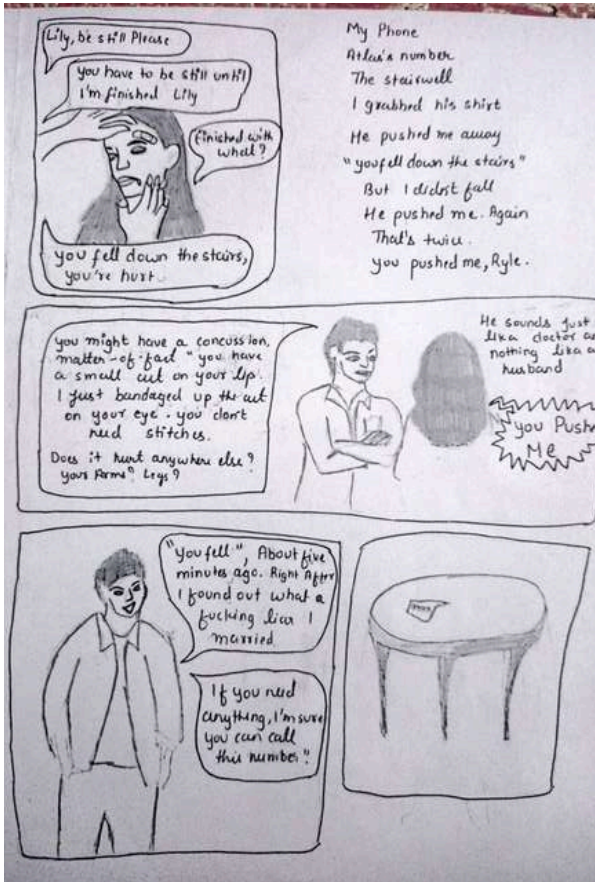 Lily, be still Please
you have to be still until
I'm finished Lily
finished with
what?
you fell down the stairs,
you're hurt.
My Phone
Atlas's number
The stairwell
I grabbed his shirt
He pushed me away
"you fell down the stairs"
But I didn't fall
He pushed me. Again
That's twice.
you pushed me, Ryle.
you might have a concussion,
matter-of-fact "you have
a small cut on your lip.
I just bandaged up the cut
on your eye. you don't
need stitches.
Does it hurt anywhere else?
your Farms? Legs?
He sounds just
like doctor as
nothing like a
husband
you Push
Me
"you fell", About five
minutes ago. Right After
I found out what a
fucking liar I
married
If you need
anything, I'm sure
you can call
this number."